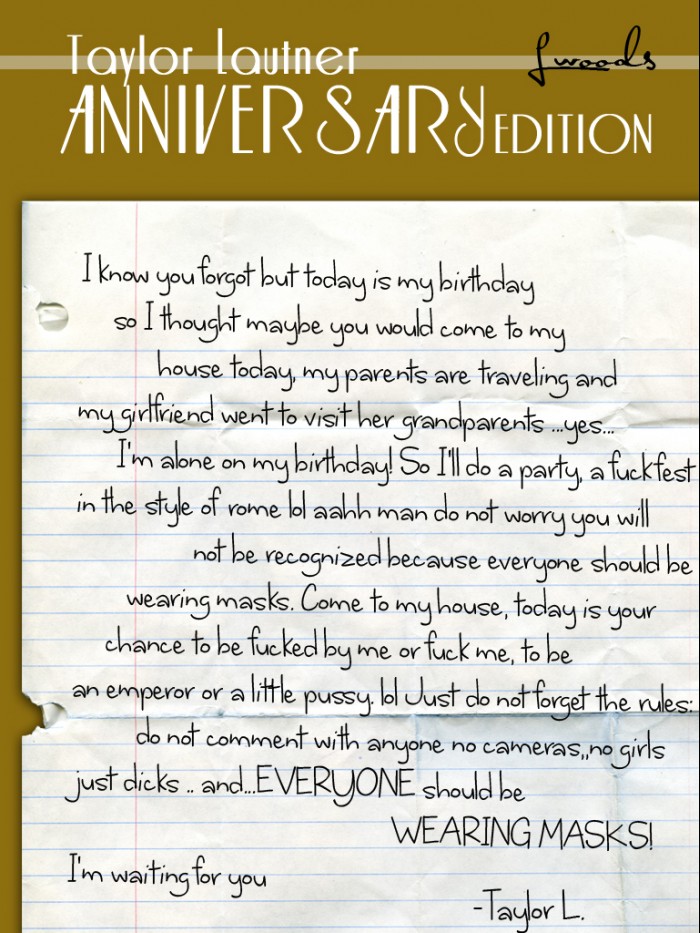 Taylor Lautner
Lwoods
ANNIVERSARY EDITION
I know you forgot but today is my birthday
so I thought maybe you would come to my
house today, my parents are traveling and
my girlfriend went to visit her grandparents ...yes...
I'm alone on my birthday! So I'll do a party, a fuckfest
in the style of rome lol aahh man do not worry you will
not be recognized because everyone should be
wearing masks. Come to my house, today is your
chance to be fucked by me or fuck me, to be
an emperor or a little pussy. lol Just do not forget the rules:
do not comment with anyone no cameras,,no girls
just dicks .. and...EVERYONE should be
WEARING MASKS!
I'm waiting for you
-Taylor L.